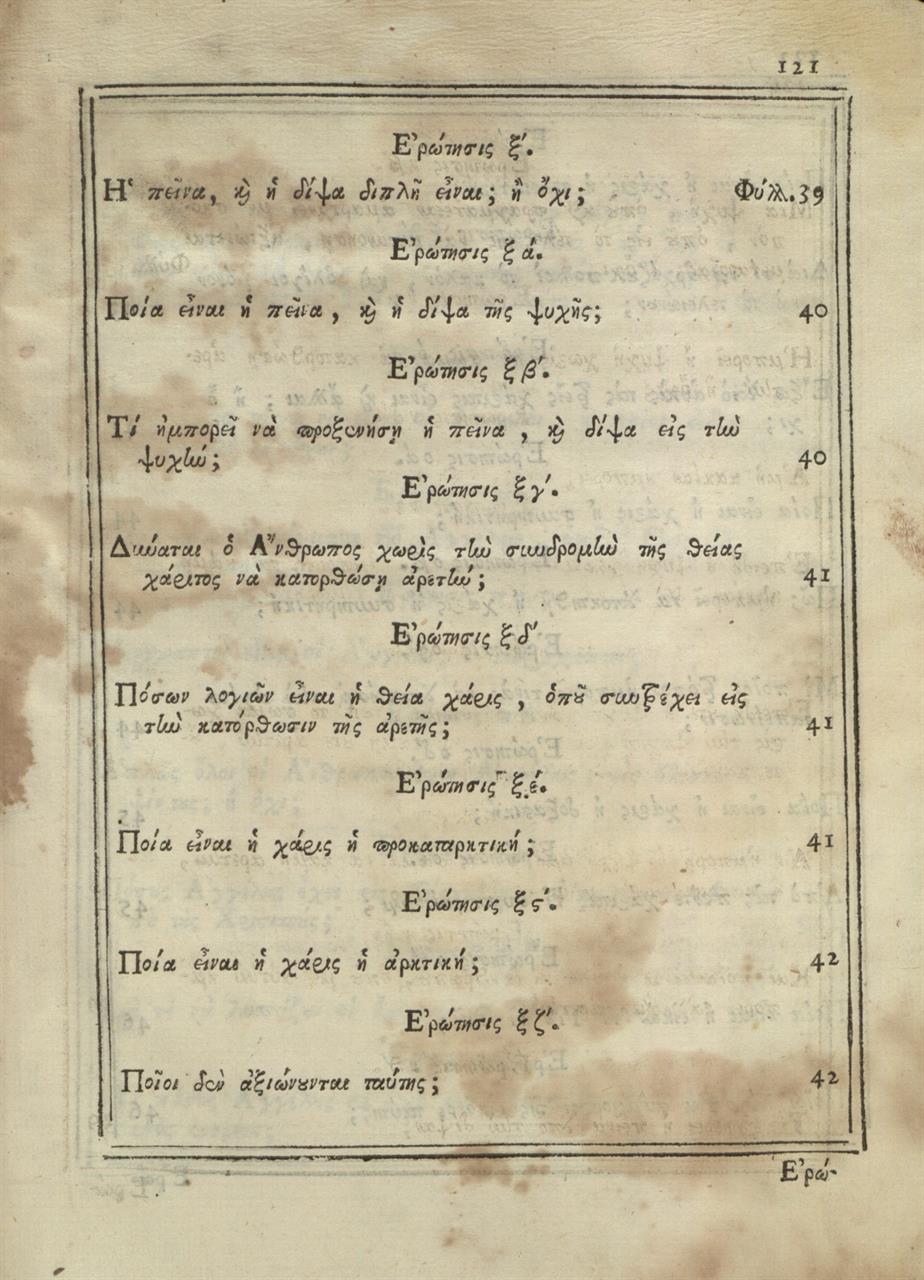 121
Ἐρώτησις ξ΄.
Ἡ πεῖνα, καὶ ἡ δίψα διπλῆ εἶναι; ἢ ὄχι; Φύλλ. 39
Ἐρώτησις ξα΄.
Ποία εἶναι ἡ πεῖνα, καὶ ἡ δίψα τῆς ψυχῆς; 40
Ἐρώτησις ξβ΄.
Τί ἠμπορεῖ νὰ προξενήσῃ ἡ πεῖνα, καὶ δίψα εἰς τὴν
ψυχήν; 40
Ἐρώτησις ξγ΄.
Δύναται ὁ Ἄνθρωπος χωρὶς τὴν συνδρομὴν τῆς θείας
χάριτος νὰ κατορθώσῃ ἀρετήν; 41
Ἐρώτησις ξδ΄
Πόσων λογιῶν εἶναι ἡ θεία χάρις, ὁποῦ συντρέχει εἰς
τὴν κατόρθωσιν τῆς ἀρετῆς; 41
Ἐρώτησις ξέ.
Ποία εἶναι ἡ χάρις ἡ προκαταρκτική; 41
Ἐρώτησις ξϛ΄.
Ποία εἶναι ἡ χάρις ἡ ἀρκτική; 42
Ἐρώτησις ξζ΄.
Ποῖοι δὲν ἀξιώνουνται ταύτης; 42
Ἐρώ-